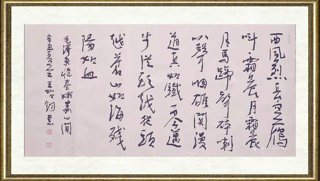 西風烈長空雁
叫霜晨月霜晨
月馬蹄聲碎喇
叭聲咽雄關漫
道真如鐵而今邁
步從頭越從頭
越蒼山如海殘
陽如血
毛澤東憶秦娥婁山關